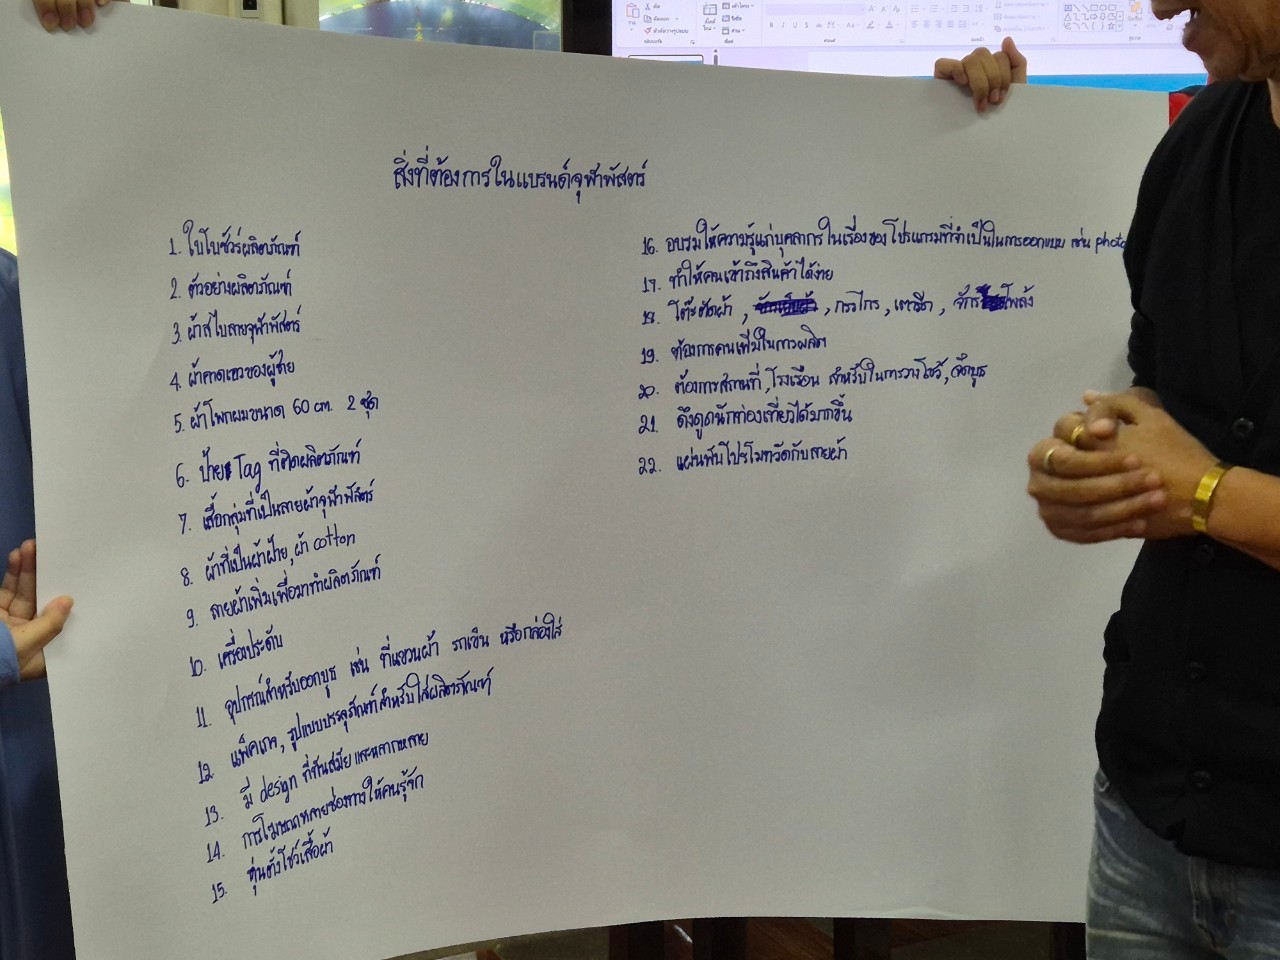 สิ่งที่ต้องการในแบรนด์จุฬาพัสตร์
1. ใบโบชัวร์ผลิตภัณฑ์
2. ตัวอย่างผลิตภัณฑ์
3. ผ้าสไบลายจุฬาพัสตร์
4. ผ้าคาดเอวของผู้ชาย
5. ผ้าโพกผมขนาด 60 cm. 2 ชุด
6. ป้าย Tag ที่ติดผลิตภัณฑ์
7. เสื้อกลุ่มที่เป็นลายผ้าจุฬาพัสตร์
8. ผ้าที่เป็นผ้าฝ้าย, ผ้า cotton
9. ลายผ้าเพิ่มเพื่อมาทำผลิตภัณฑ์
10. เครื่องประดับ
11. อุปกรณ์สำหรับออกบูธ เช่น ที่แขวนผ้า รถเข็น หรือกล่องใส่
12. แพ็คเกจ, รูปแบบบรรจุภัณฑ์สำหรับใส่ผลิตภัณฑ์
13. มี design ที่ทันสมัย และหลากหลาย
14. การโฆษณาหลายช่องทางให้คนรู้จัก
15. หุ่นตั้งโชว์เสื้อผ้า
16. อบรมให้ความรู้แก่บุคลากรในเรื่องของโปรแกรมที่จำเป็นในการออกแบบ เช่น photo
17. ทำให้คนเข้าถึงสินค้าได้ง่าย
18. โต๊ะตัดผ้า, กรรไกร, เตารีด, จักรโพล้ง
19. ต้องการคนเพิ่มในการผลิต
20. ต้องการสถานที่, โรงเรือน สำหรับในการวางโชว์, จัดบูธ
21. ดึงดูดนักท่องเที่ยวได้มากขึ้น
22. แผ่นพับโปรโมทวัดกับลายผ้า